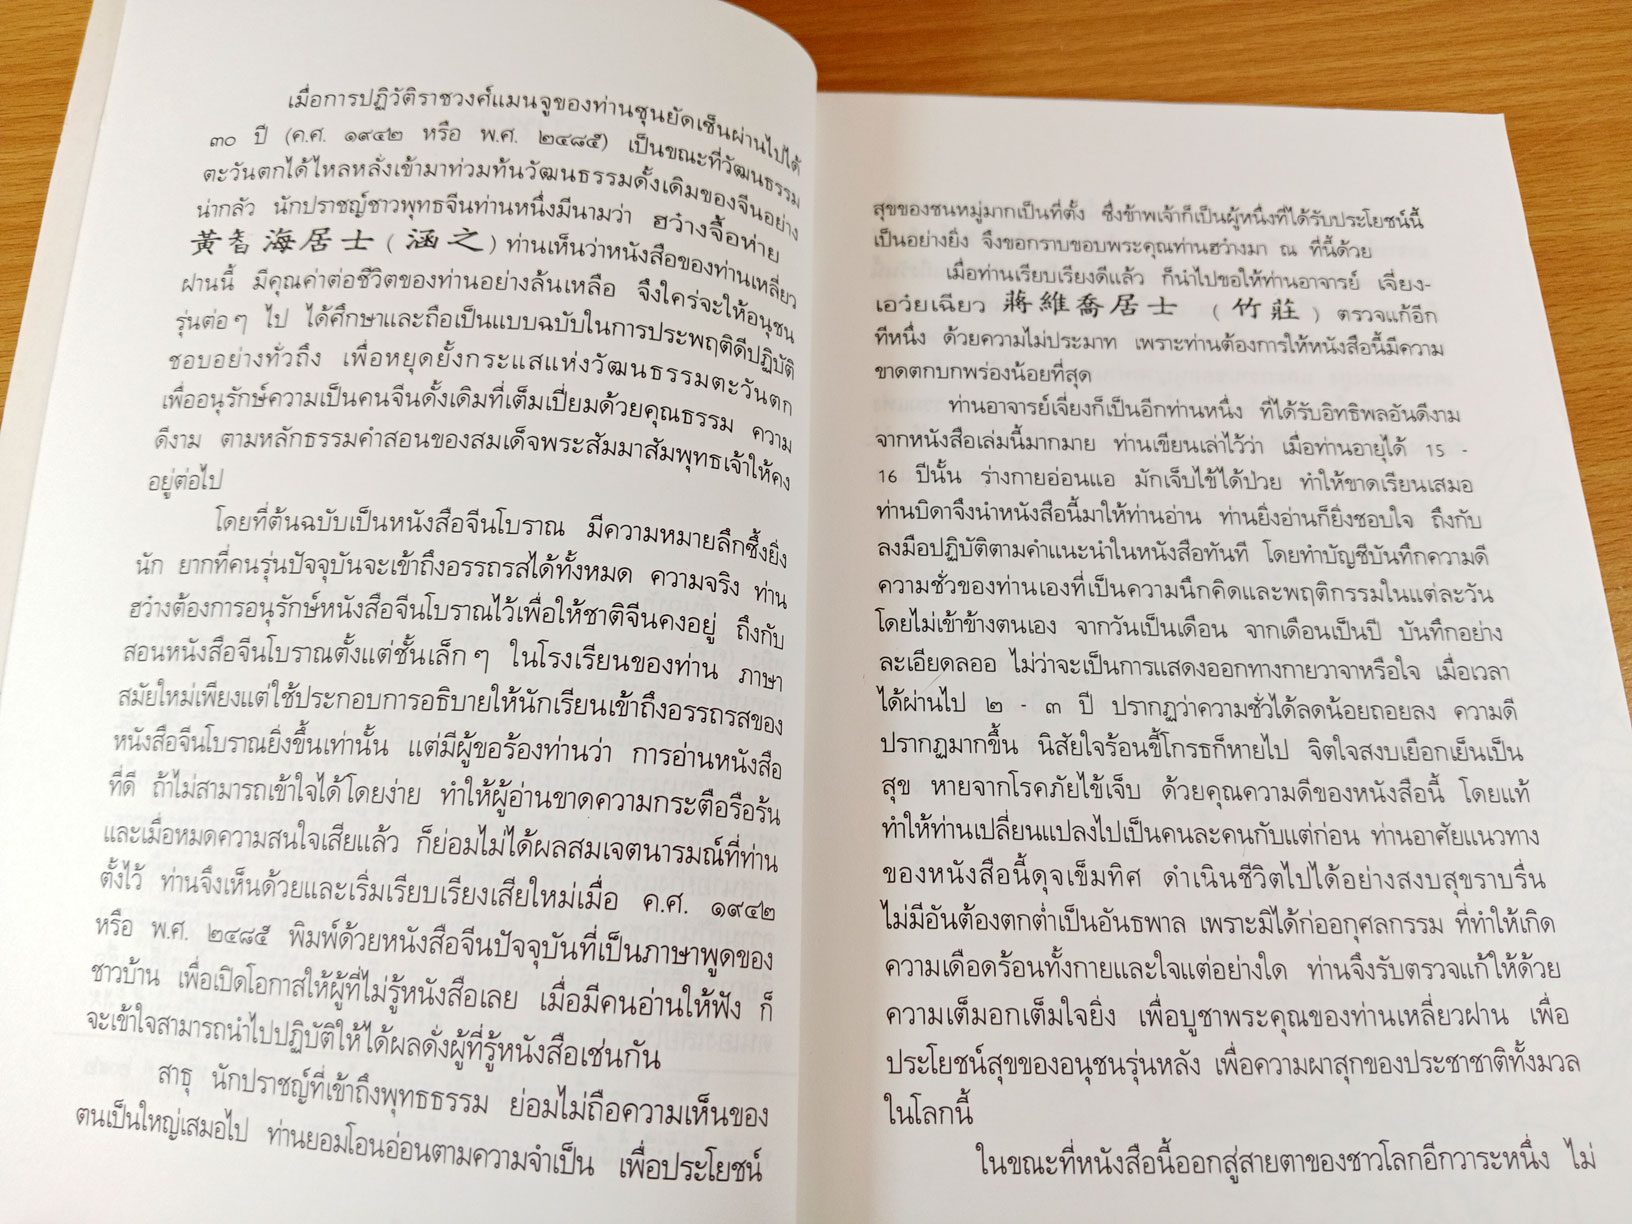 เมื่อการปฏิวัติราชวงศ์แมนจูของท่านซุนยัดเซ็นผ่านไปได้
๓๐ ปี (ค.ศ. ๑๙๔๒ หรือ พ.ศ. ๒๔๘๕) เป็นขณะที่วัฒนธรรม
ตะวันตกได้ไหลหลั่งเข้ามาท่วมท้นวัฒนธรรมดั้งเดิมของจีนอย่าง
น่ากลัว นักปราชญ์ชาวพุทธจีนท่านหนึ่งมีนามว่า ฮว๋างจื้อห่าย
黃智海居士 (涵之) ท่านเห็นว่าหนังสือของท่านเหลี่ยว
ฝานนี้ มีคุณค่าต่อชีวิตของท่านอย่างล้นเหลือ จึงใคร่จะให้อนุชน
รุ่นต่อๆ ไป ได้ศึกษาและถือเป็นแบบฉบับในการประพฤติดีปฏิบัติ
ชอบอย่างทั่วถึง เพื่อหยุดยั้งกระแสแห่งวัฒนธรรมตะวันตก
เพื่ออนุรักษ์ความเป็นคนจีนดั้งเดิมที่เต็มเปี่ยมด้วยคุณธรรม ความ
ดีงาม ตามหลักธรรมคำสอนของสมเด็จพระสัมมาสัมพุทธเจ้าให้คง
อยู่ต่อไป
โดยที่ต้นฉบับเป็นหนังสือจีนโบราณ มีความหมายลึกซึ้งยิ่ง
นัก ยากที่คนรุ่นปัจจุบันจะเข้าถึงอรรถรสได้ทั้งหมด ความจริง ท่าน
ฮว๋างต้องการอนุรักษ์หนังสือจีนโบราณไว้เพื่อให้ชาติจีนคงอยู่ ถึงกับ
สอนหนังสือจีนโบราณตั้งแต่ชั้นเล็กๆ ในโรงเรียนของท่าน ภาษา
สมัยใหม่เพียงแต่ใช้ประกอบการอธิบายให้นักเรียนเข้าถึงอรรถรสของ
หนังสือจีนโบราณยิ่งขึ้นเท่านั้น แต่มีผู้ขอร้องท่านว่า การอ่านหนังสือ
ที่ดี ถ้าไม่สามารถเข้าใจได้โดยง่าย ทำให้ผู้อ่านขาดความกระตือรือร้น
และเมื่อหมดความสนใจเสียแล้ว ก็ย่อมไม่ได้ผลสมเจตนารมณ์ที่ท่าน
ตั้งไว้ ท่านจึงเห็นด้วยและเริ่มเรียบเรียงเสียใหม่เมื่อ ค.ศ. ๑๙๔๒
หรือ พ.ศ. ๒๔๘๕ พิมพ์ด้วยหนังสือจีนปัจจุบันที่เป็นภาษาพูดของ
ชาวบ้าน เพื่อเปิดโอกาสให้ผู้ที่ไม่รู้หนังสือเลย เมื่อมีคนอ่านให้ฟัง ก็
จะเข้าใจสามารถนำไปปฏิบัติให้ได้ผลดั่งผู้ที่รู้หนังสือเช่นกัน
สาธุ นักปราชญ์ที่เข้าถึงพุทธธรรม ย่อมไม่ถือความเห็นของ
ตนเป็นใหญ่เสมอไป ท่านยอมโอนอ่อนตามความจำเป็น เพื่อประโยชน์
สุขของชนหมู่มากเป็นที่ตั้ง ซึ่งข้าพเจ้าก็เป็นผู้หนึ่งที่ได้รับประโยชน์นี้
เป็นอย่างยิ่ง จึงขอกราบขอบพระคุณท่านฮว๋างมา ณ ที่นี้ด้วย
เมื่อท่านเรียบเรียงดีแล้ว ก็นำไปขอให้ท่านอาจารย์ เจี่ยง-
เอว๋ยเฉียว 蔣維喬居士 (竹莊) ตรวจแก้อีก
ทีหนึ่ง ด้วยความไม่ประมาท เพราะท่านต้องการให้หนังสือนี้มีความ
ขาดตกบกพร่องน้อยที่สุด
ท่านอาจารย์เจี่ยงก็เป็นอีกท่านหนึ่ง ที่ได้รับอิทธิพลอันดีงาม
จากหนังสือเล่มนี้มากมาย ท่านเขียนเล่าไว้ว่า เมื่อท่านอายุได้ 15 -
16 ปีนั้น ร่างกายอ่อนแอ มักเจ็บไข้ได้ป่วย ทำให้ขาดเรียนเสมอ
ท่านบิดาจึงนำหนังสือนี้มาให้ท่านอ่าน ท่านยิ่งอ่านก็ยิ่งชอบใจ ถึงกับ
ลงมือปฏิบัติตามคำแนะนำในหนังสือทันที โดยทำบัญชีบันทึกความดี
ความชั่วของท่านเองที่เป็นความนึกคิดและพฤติกรรมในแต่ละวัน
โดยไม่เข้าข้างตนเอง จากวันเป็นเดือน จากเดือนเป็นปี บันทึกอย่าง
ละเอียดลออ ไม่ว่าจะเป็นการแสดงออกทางกายวาจาหรือใจ เมื่อเวลา
ได้ผ่านไป ๒ - ๓ ปี ปรากฏว่าความชั่วได้ลดน้อยถอยลง ความดี
ปรากฏมากขึ้น นิสัยใจร้อนขี้โกรธก็หายไป จิตใจสงบเยือกเย็นเป็น
สุข หายจากโรคภัยไข้เจ็บ ด้วยคุณความดีของหนังสือนี้ โดยแท้
ทำให้ท่านเปลี่ยนแปลงไปเป็นคนละคนกับแต่ก่อน ท่านอาศัยแนวทาง
ของหนังสือนี้ดุจเข็มทิศ ดำเนินชีวิตไปได้อย่างสงบสุขราบรื่น
ไม่มีอันต้องตกต่ำเป็นอันธพาล เพราะมิได้ก่ออกุศลกรรม ที่ทำให้เกิด
ความเดือดร้อนทั้งกายและใจแต่อย่างใด ท่านจึงรับตรวจแก้ให้ด้วย
ความเต็มอกเต็มใจยิ่ง เพื่อบูชาพระคุณของท่านเหลี่ยวฝาน เพื่อ
ประโยชน์สุขของอนุชนรุ่นหลัง เพื่อความผาสุกของประชาชาติทั้งมวล
ในโลกนี้
ในขณะที่หนังสือนี้ออกสู่สายตาของชาวโลกอีกวาระหนึ่ง ไม่